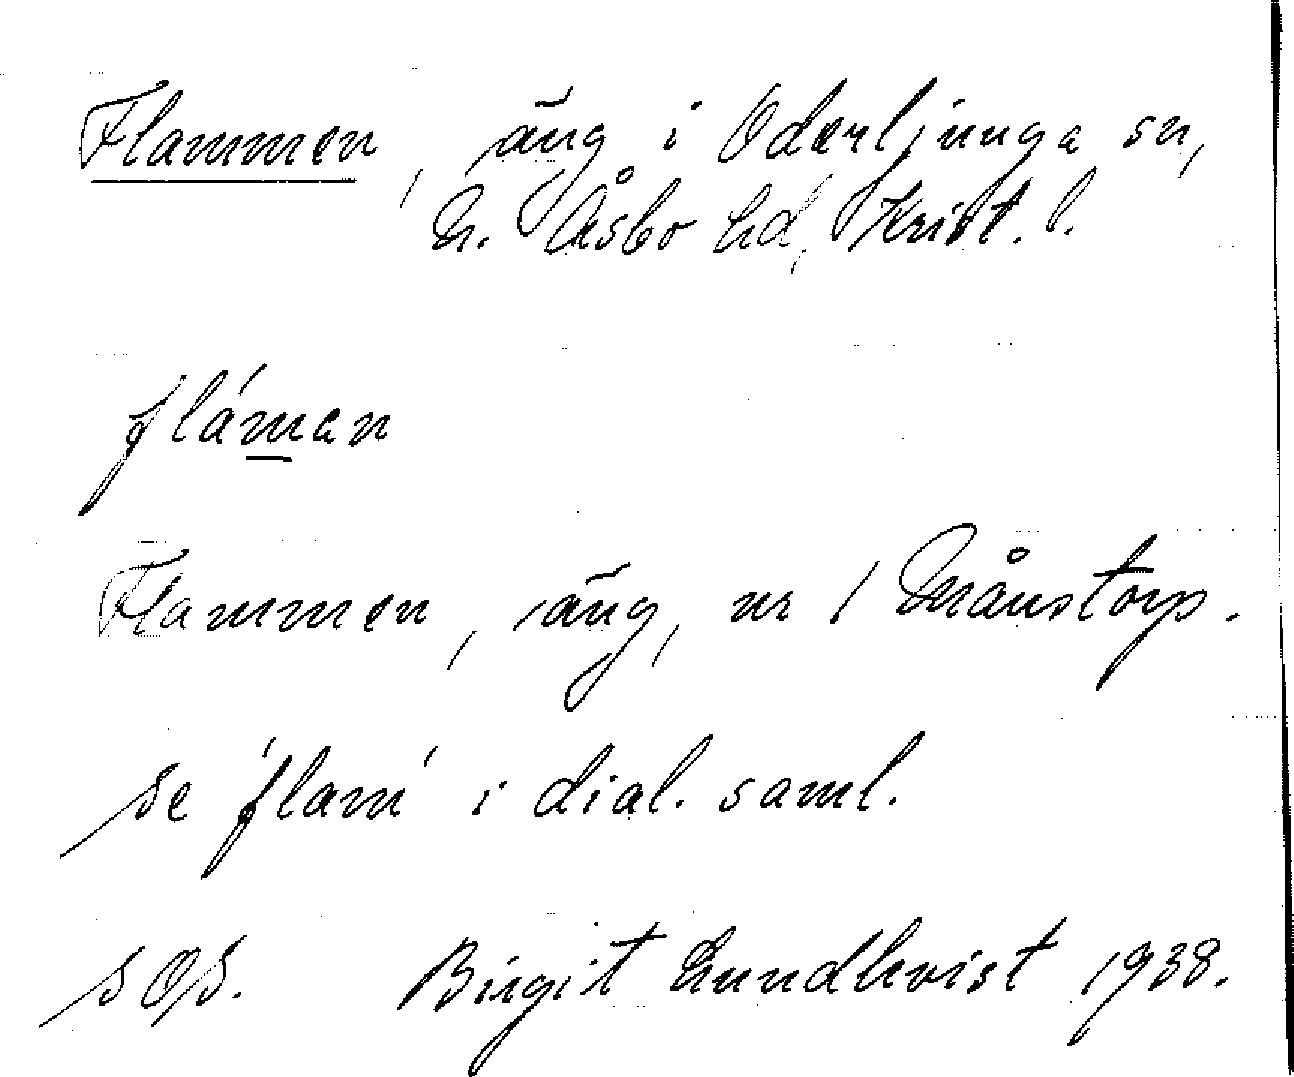 Flammen, äng i Oderljunga sn,
N. Åsbo hd, Krist. l.
fláman
Flammen, äng, nr 1 Månstorp.
se 'flam' i dial. saml.
Birgit Lundkvist 1938.